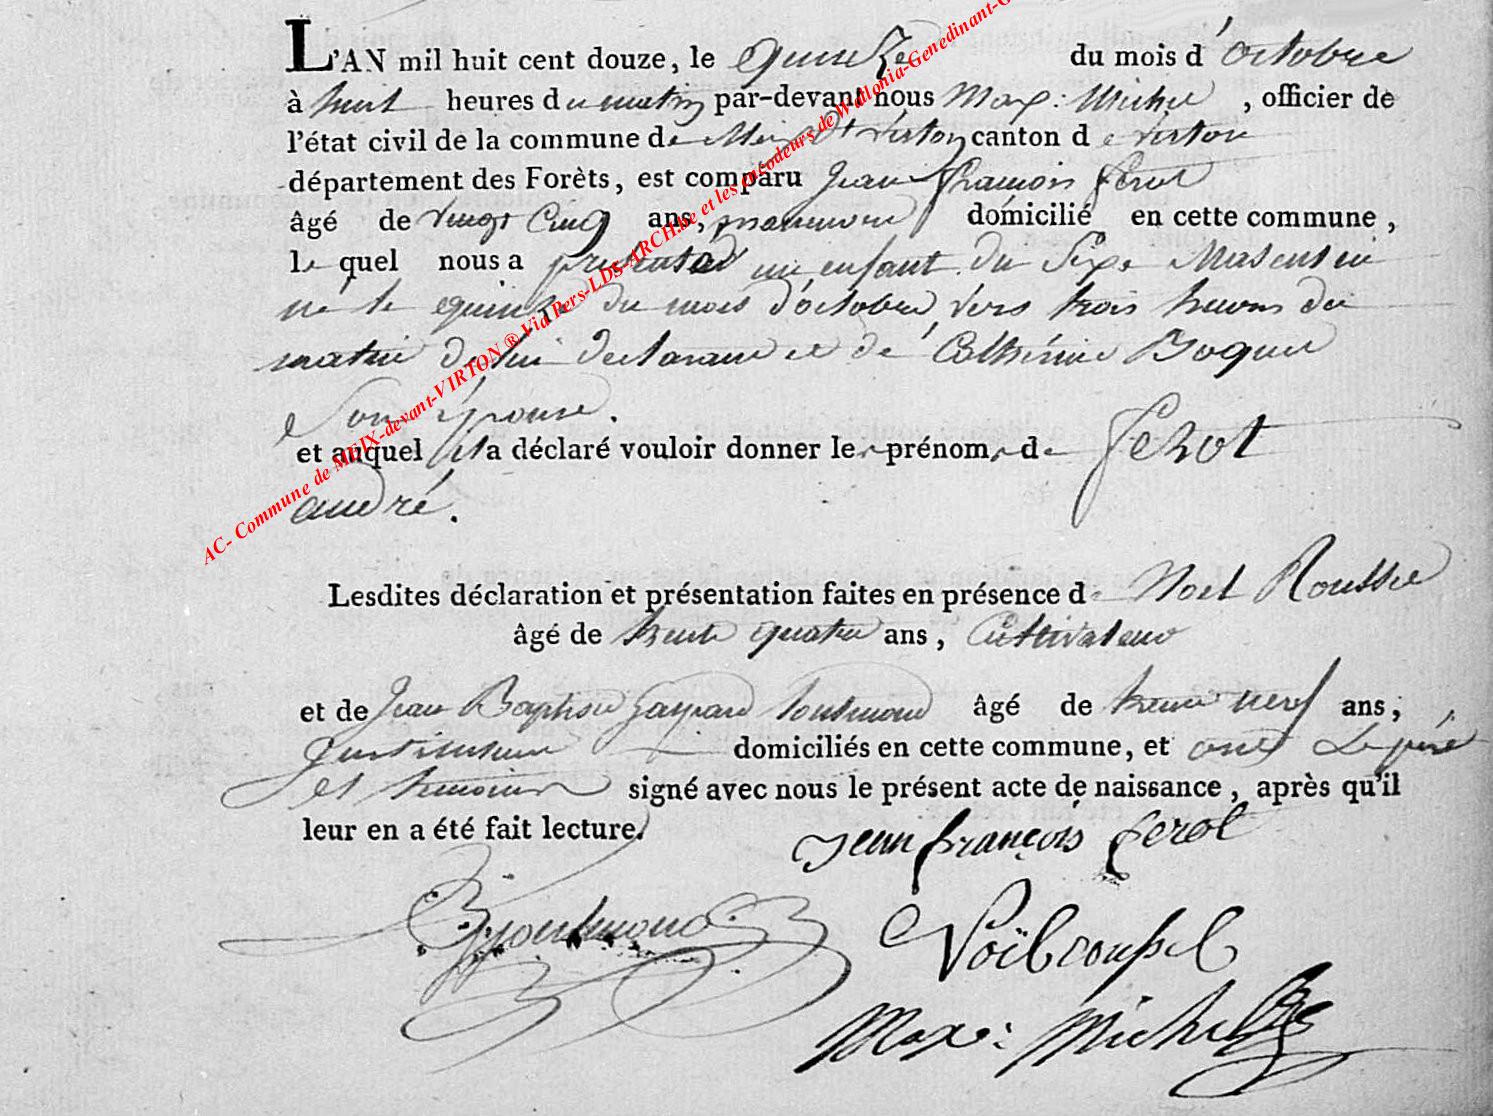 L'AN mil huit cent douze, le quinze du mois d'octobre
à huit heures du matin par-devant nous Max: Michel, officier de
l'état civil de la commune de Meix dt virton canton de virton
département des Forêts, est comparu Jean François ferot
âgé de vingt Cinq ans, manoeuvre domicilié en cette commune,
le quel nous a présenté un enfant du Sexe Masculin
né le quinze du mois d'octobre, vers trois heures du
matin de lui declarant et de Catherine
Son épouse.
et auquel il a déclaré vouloir donner le prénom de ferot
andré.
Lesdites déclaration et présentation faites en présence de Noel Roussel
âgé de trente quatre ans, Cultivateur
et de Jean Baptiste Gaspard âgé de trente neuf ans,
Instituteur domiciliés en cette commune, et ont Le père
et temoins signé avec nous le présent acte de naissance, après qu'il
leur en a été fait lecture.
Jean françois ferot
Noël roussel
Max: Michel
AC- Commune de MEIX-devant-VIRTON ® Via Pers-LDS-ARCH.be et les encodeurs de Wallonia-Genedinant-G